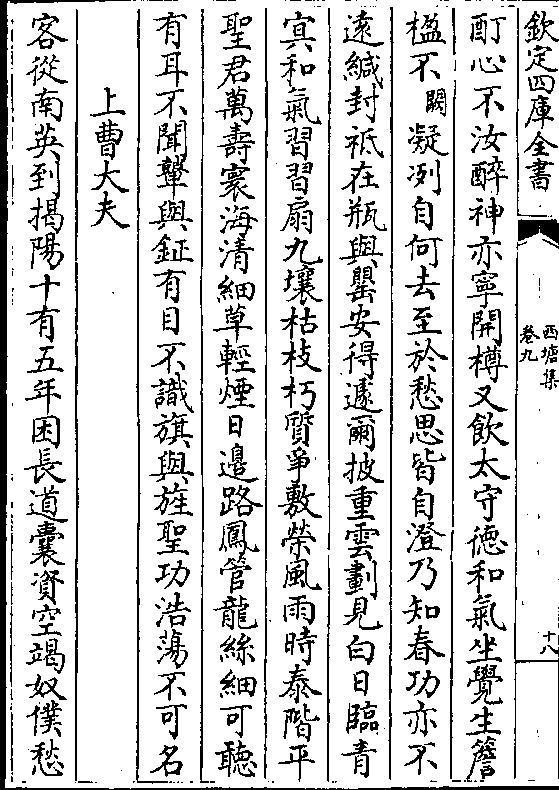 欽定四庫全書
西塘集
卷九
十八
酊心不汝醉神亦寧開樽又飲太守徳和氣坐覺生簷
楹不闕凝冽自何去至於愁思皆自澄乃知春功亦不
逺緘封衹在瓶與罌安得遽爾披重雲劃見白日臨青
㝠和氣習習扇九壤枯枝朽質爭敷榮風雨時泰階平
聖君萬夀寰海清細草輕煙日邊路鳳管龍絲細可聽
有耳不聞鼙與鉦有目不識旗與旌聖功浩蕩不可名
上曹大夫
客從南英到揭陽十有五年困長道囊資空竭奴僕愁